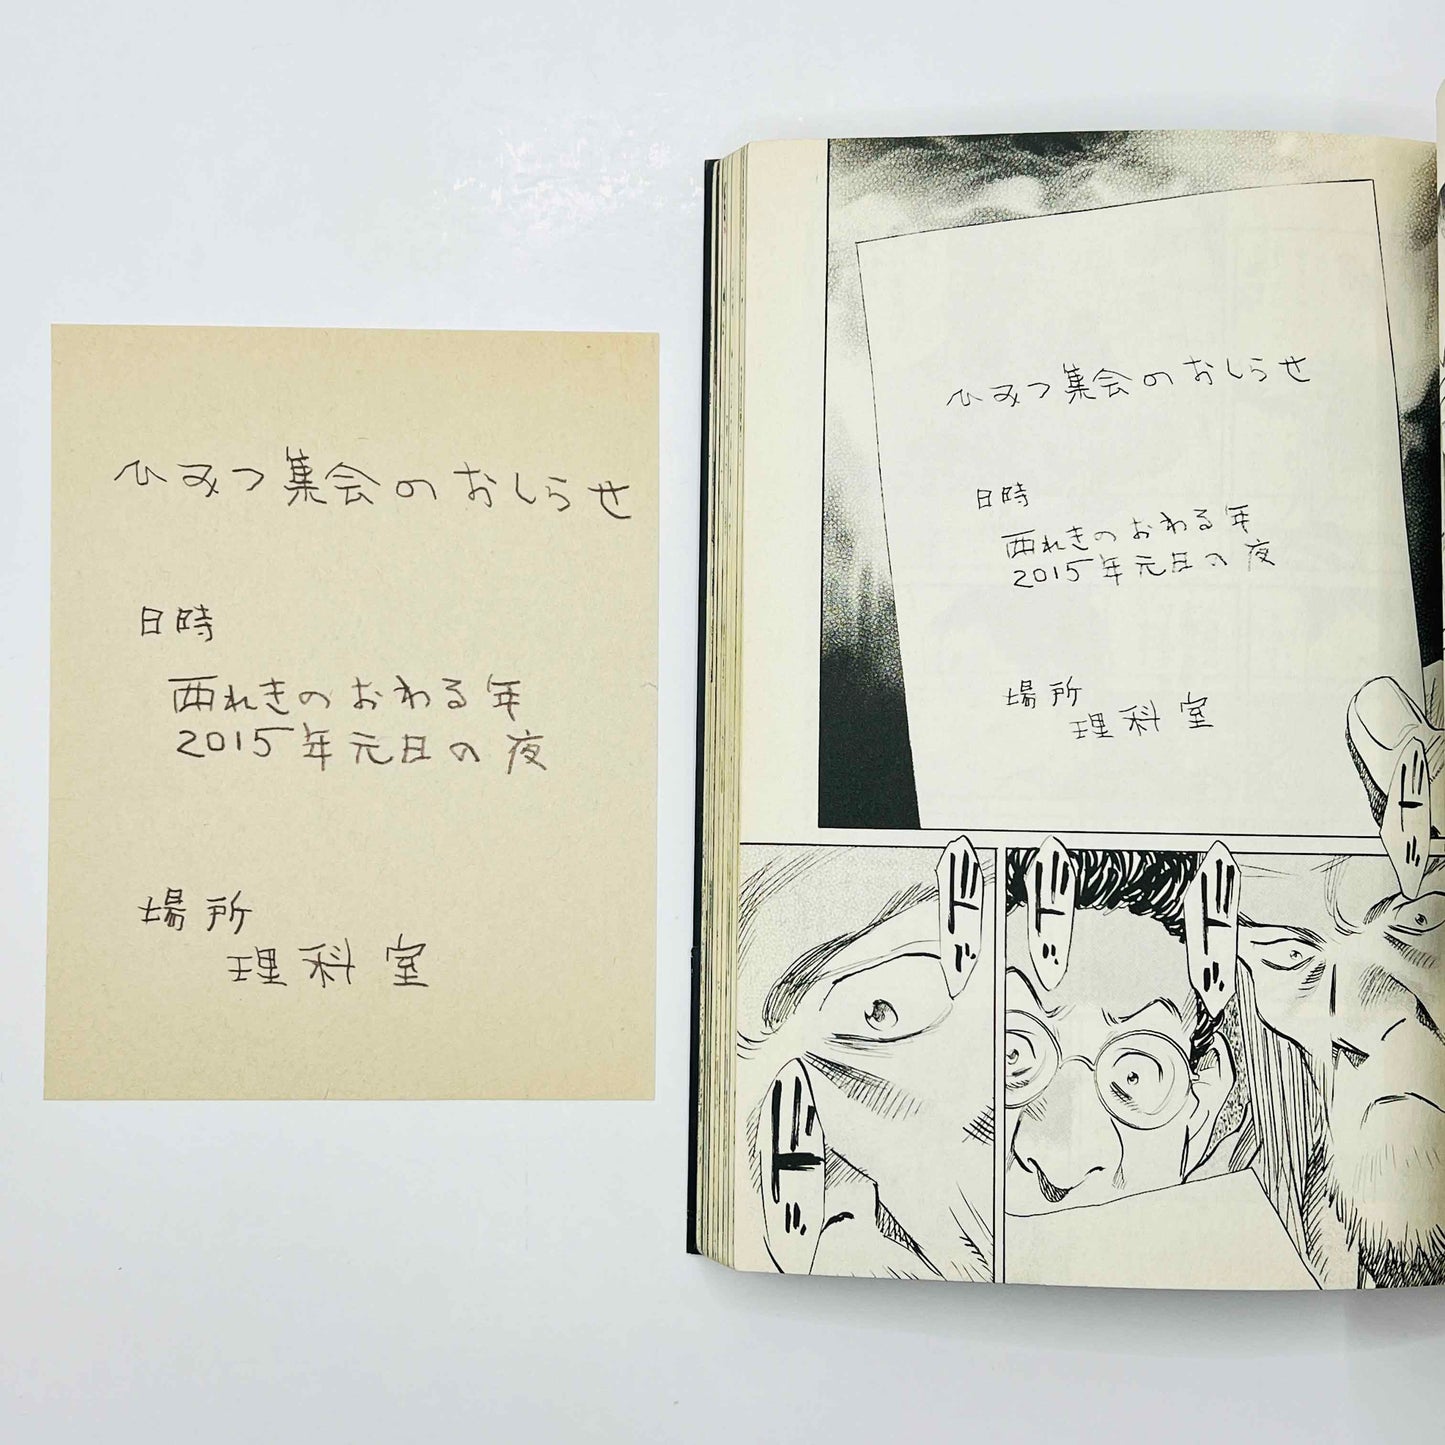 ひみつ集会のおしらせ
日時
西れきのおわる年
2015年元日の夜
場所
理科室
ひみつ集会のおしらせ
日時
西れきのおわる年
2015年元日の夜
場所
理科室
ドド
ドド
ドド
ドド
ドド